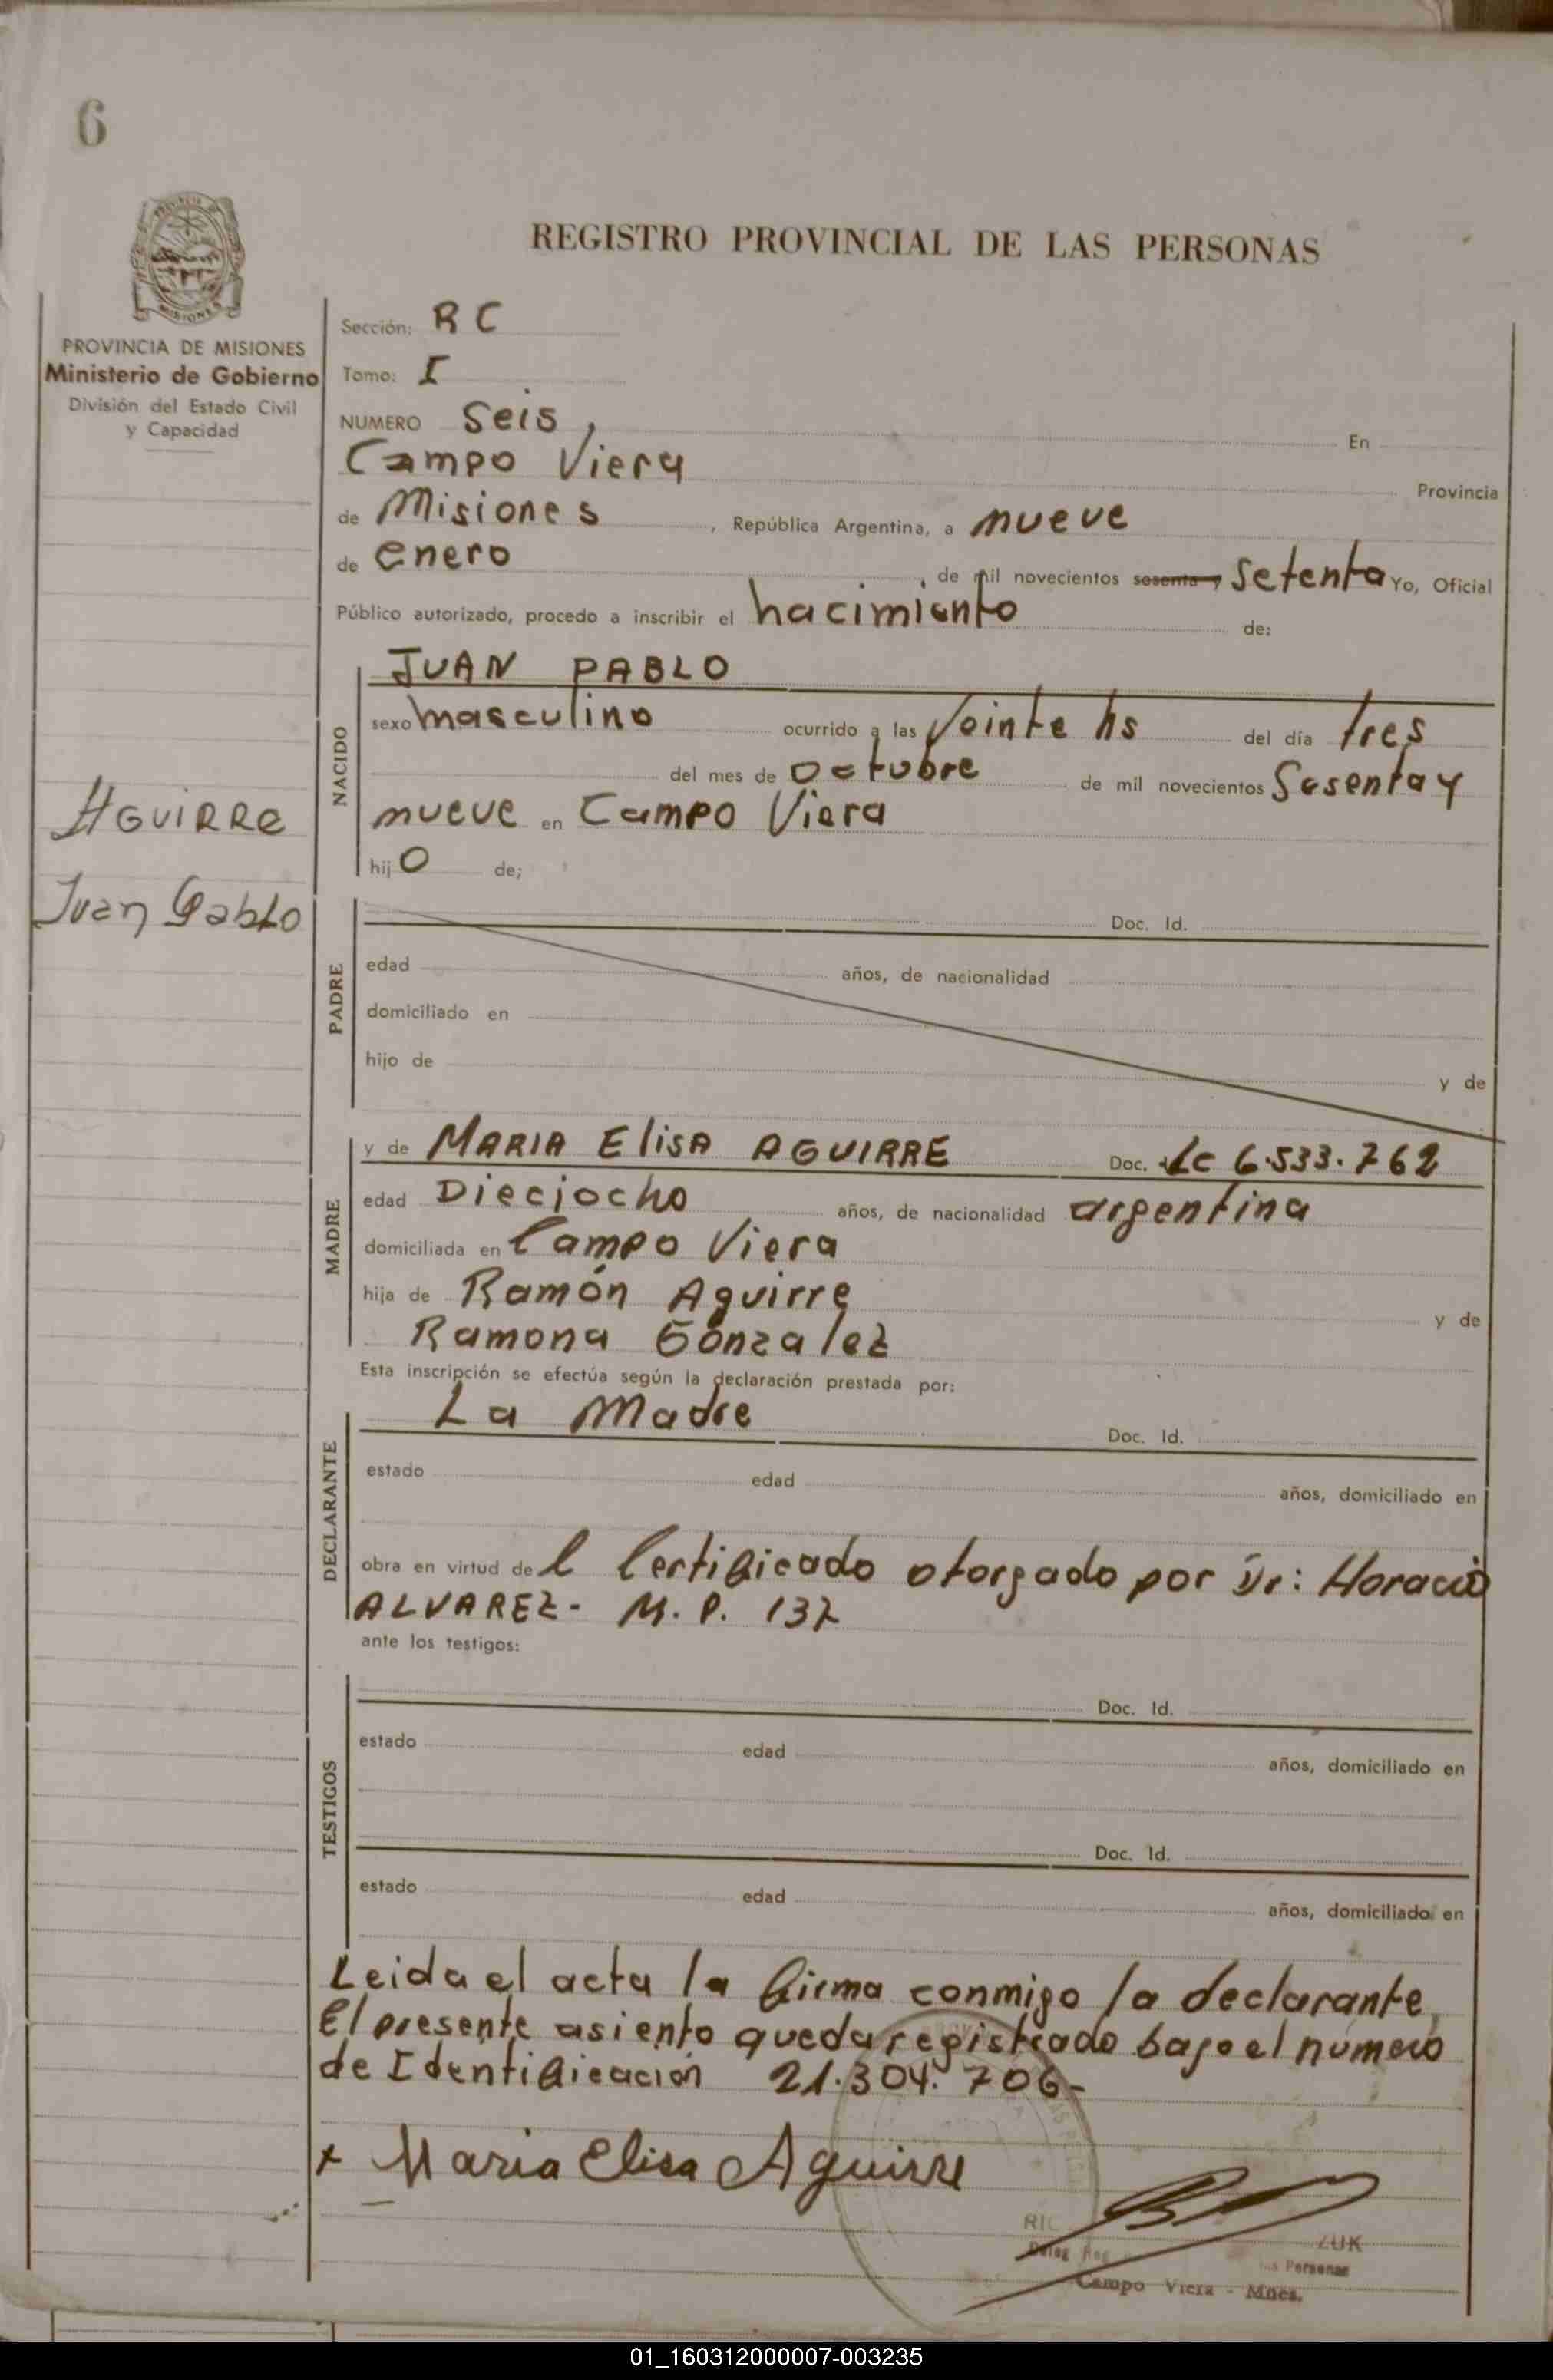 6
REGISTRO PROVINCIAL DE LAS PERSONAS
PROVINCIA DE MISIONES
Ministerio de Gobierno
División del Estado Civil
y Capacidad
Sección: R C
Tomo: I
NUMERO Seis, En
Campo Viera Provincia
de Misiones, República Argentina, a nueve
de enero, de mil novecientos sesenta y setenta Yo, Oficial
Público autorizado, procedo a inscribir el nacimiento de:
NACIDO
JUAN PABLO
sexo masculino ocurrido a las Veinte hs del día tres
del mes de octubre de mil novecientos Sesenta y
nueve en Campo Viera
hijo de;
AGUIRRe
Juan Pablo
PADRE
Doc. Id.
edad años, de nacionalidad
domiciliado en
hijo de y de
MADRE
y de MARIA ElisA AGUIRRE Doc. Lc 6.533.762
edad Dieciocho años, de nacionalidad argentina
domiciliada en Campo Viera
hija de Ramón Aguirre y de
Ramona Gonzalez
Esta inscripción se efectúa según la declaración prestada por:
DECLARANTE
La Madre Doc. Id.
estado edad años, domiciliado en
obra en virtud del Certificado otorgado por Dr: Horacio
ALVAREZ - M. P. 137
ante los testigos:
TESTIGOS
Doc. Id.
estado edad años, domiciliado en
Doc. Id.
estado edad años, domiciliado en
Leida el acta la firma conmigo la declarante,
El presente asiento queda registrado bajo el número
de Identificación 21.304.706-
x Maria Elisa Aguirre
RIC ZUK
Deleg Reg las Personas
Campo Viera - Mnes.
01_160312000007-003235